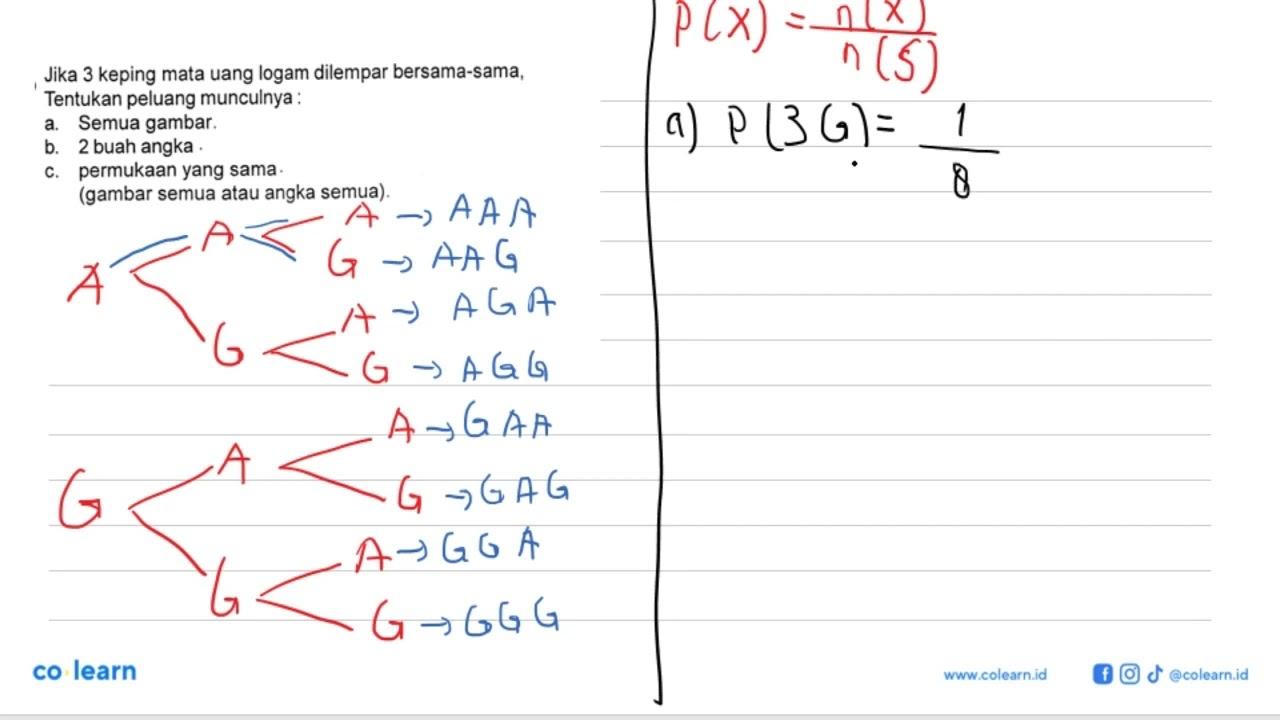 Jika 3 keping mata uang logam dilempar bersama-sama,
Tentukan peluang munculnya :
a. Semua gambar.
b. 2 buah angka .
c. permukaan yang sama.
(gambar semua atau angka semua).
A
A
A → AAA
G → AAG
G
A → AGA
G → AGG
G
A
A → GAA
G → GAG
G
A → GGA
G → GGG
P(X) = n(X)
n(S)
a) P(3G) = 1
8
co learn
www.colearn.id
@colearn.id